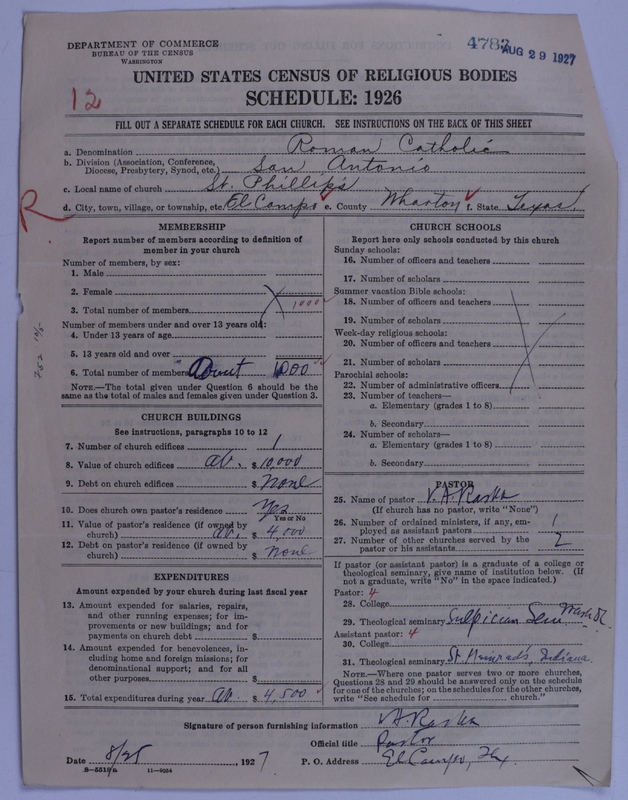 DEPARTMENT OF COMMERCE
BUREAU OF THE CENSUS
WASHINGTON
4783
AUG 29 1927
UNITED STATES CENSUS OF RELIGIOUS BODIES
SCHEDULE: 1926
12
FILL OUT A SEPARATE SCHEDULE FOR EACH CHURCH. SEE INSTRUCTIONS ON THE BACK OF THIS SHEET
a. Denomination Roman Catholic
b. Division (Association, Conference, Diocese, Presbytery, Synod, etc.) San Antonio
c. Local name of church St. Phillips
d. City, town, village, or township, etc. El Campo e. County Wharton f. State Texas
R
MEMBERSHIP
Report number of members according to definition of
member in your church
Number of members, by sex:
1. Male
2. Female
3. Total number of members 1000
Number of members under and over 13 years old:
4. Under 13 years of age
5. 13 years old and over
6. Total number of members About 1000
NOTE.—The total given under Question 6 should be
same as the total of males and females given under Question 3.
CHURCH BUILDINGS
See instructions, paragraphs 10 to 12
7. Number of church edifices 1
8. Value of church edifices ab. $ 10,000
9. Debt on church edifices $ None
10. Does church own pastor's residence Yes
Yes or No
11. Value of pastor's residence (if owned by
church) ab. $ 4,000
12. Debt on pastor's residence (if owned by
church) $ None
EXPENDITURES
Amount expended by your church during last fiscal year
13. Amount expended for salaries, repairs,
and other running expenses; for im-
provements or new buildings; and for
payments on church debt $
14. Amount expended for benevolences, in-
cluding home and foreign missions; for
denominational support; and for all
other purposes $
15. Total expenditures during year ab $ 4,500
CHURCH SCHOOLS
Report here only schools conducted by this church
Sunday schools:
16. Number of officers and teachers
17. Number of scholars
Summer vacation Bible schools:
18. Number of officers and teachers
19. Number of scholars
Week-day religious schools:
20. Number of officers and teachers
21. Number of scholars
Parochial schools:
22. Number of administrative officers
23. Number of teachers—
a. Elementary (grades 1 to 8)
b. Secondary
24. Number of scholars—
a. Elementary (grades 1 to 8)
b. Secondary
PASTOR
25. Name of pastor V. A. Raska
(If church has no pastor, write "None")
26. Number of ordained ministers, if any, em-
ployed as assistant pastors 1
27. Number of other churches served by the
pastor or his assistants 2
If pastor (or assistant pastor) is a graduate of a college or
theological seminary, give name of institution below. (If
not a graduate, write "No" in the space indicated.)
Pastor: 4
28. College
29. Theological seminary Sulpician Sem Wash DC
Assistant pastor: 4
30. College
31. Theological seminary St Meinrads, Indiana
NOTE.—Where one pastor serves two or more churches,
Questions 28 and 29 should be answered only on the schedule
for one of the churches; on the schedules for the other churches,
write "See schedule for church."
Signature of person furnishing information V. A. Raska
Official title Pastor
Date 8/25 1927 P. O. Address El Campo, Tex
11—9054